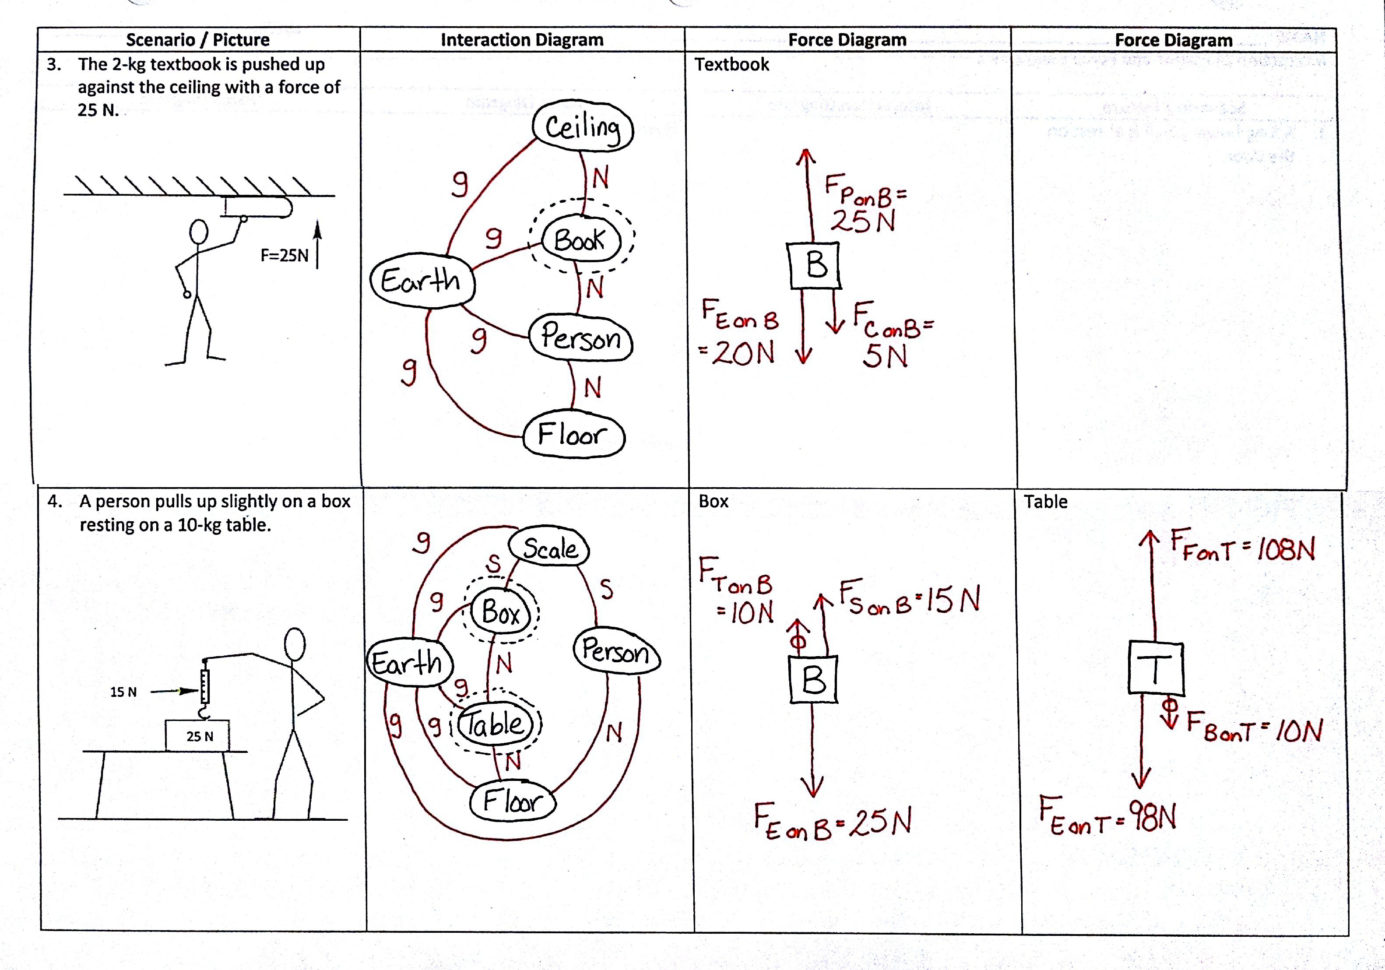 Scenario / Picture
Interaction Diagram
Force Diagram
Force Diagram
3. The 2-kg textbook is pushed up
against the ceiling with a force of
25 N.
F=25N
Ceiling
g
N
Book
g
Earth
N
Person
g
g
N
Floor
Textbook
F P on B =
25N
B
F E on B
= 20N
F C on B =
5N
4. A person pulls up slightly on a box
resting on a 10-kg table.
15 N
25 N
g
Scale
S
S
g
Box
Earth
N
Person
g
g
g
Table
N
N
Floor
Box
F T on B
= 10N
F S on B = 15N
B
F E on B = 25N
Table
F F on T = 108N
T
F B on T = 10N
F E on T = 98N